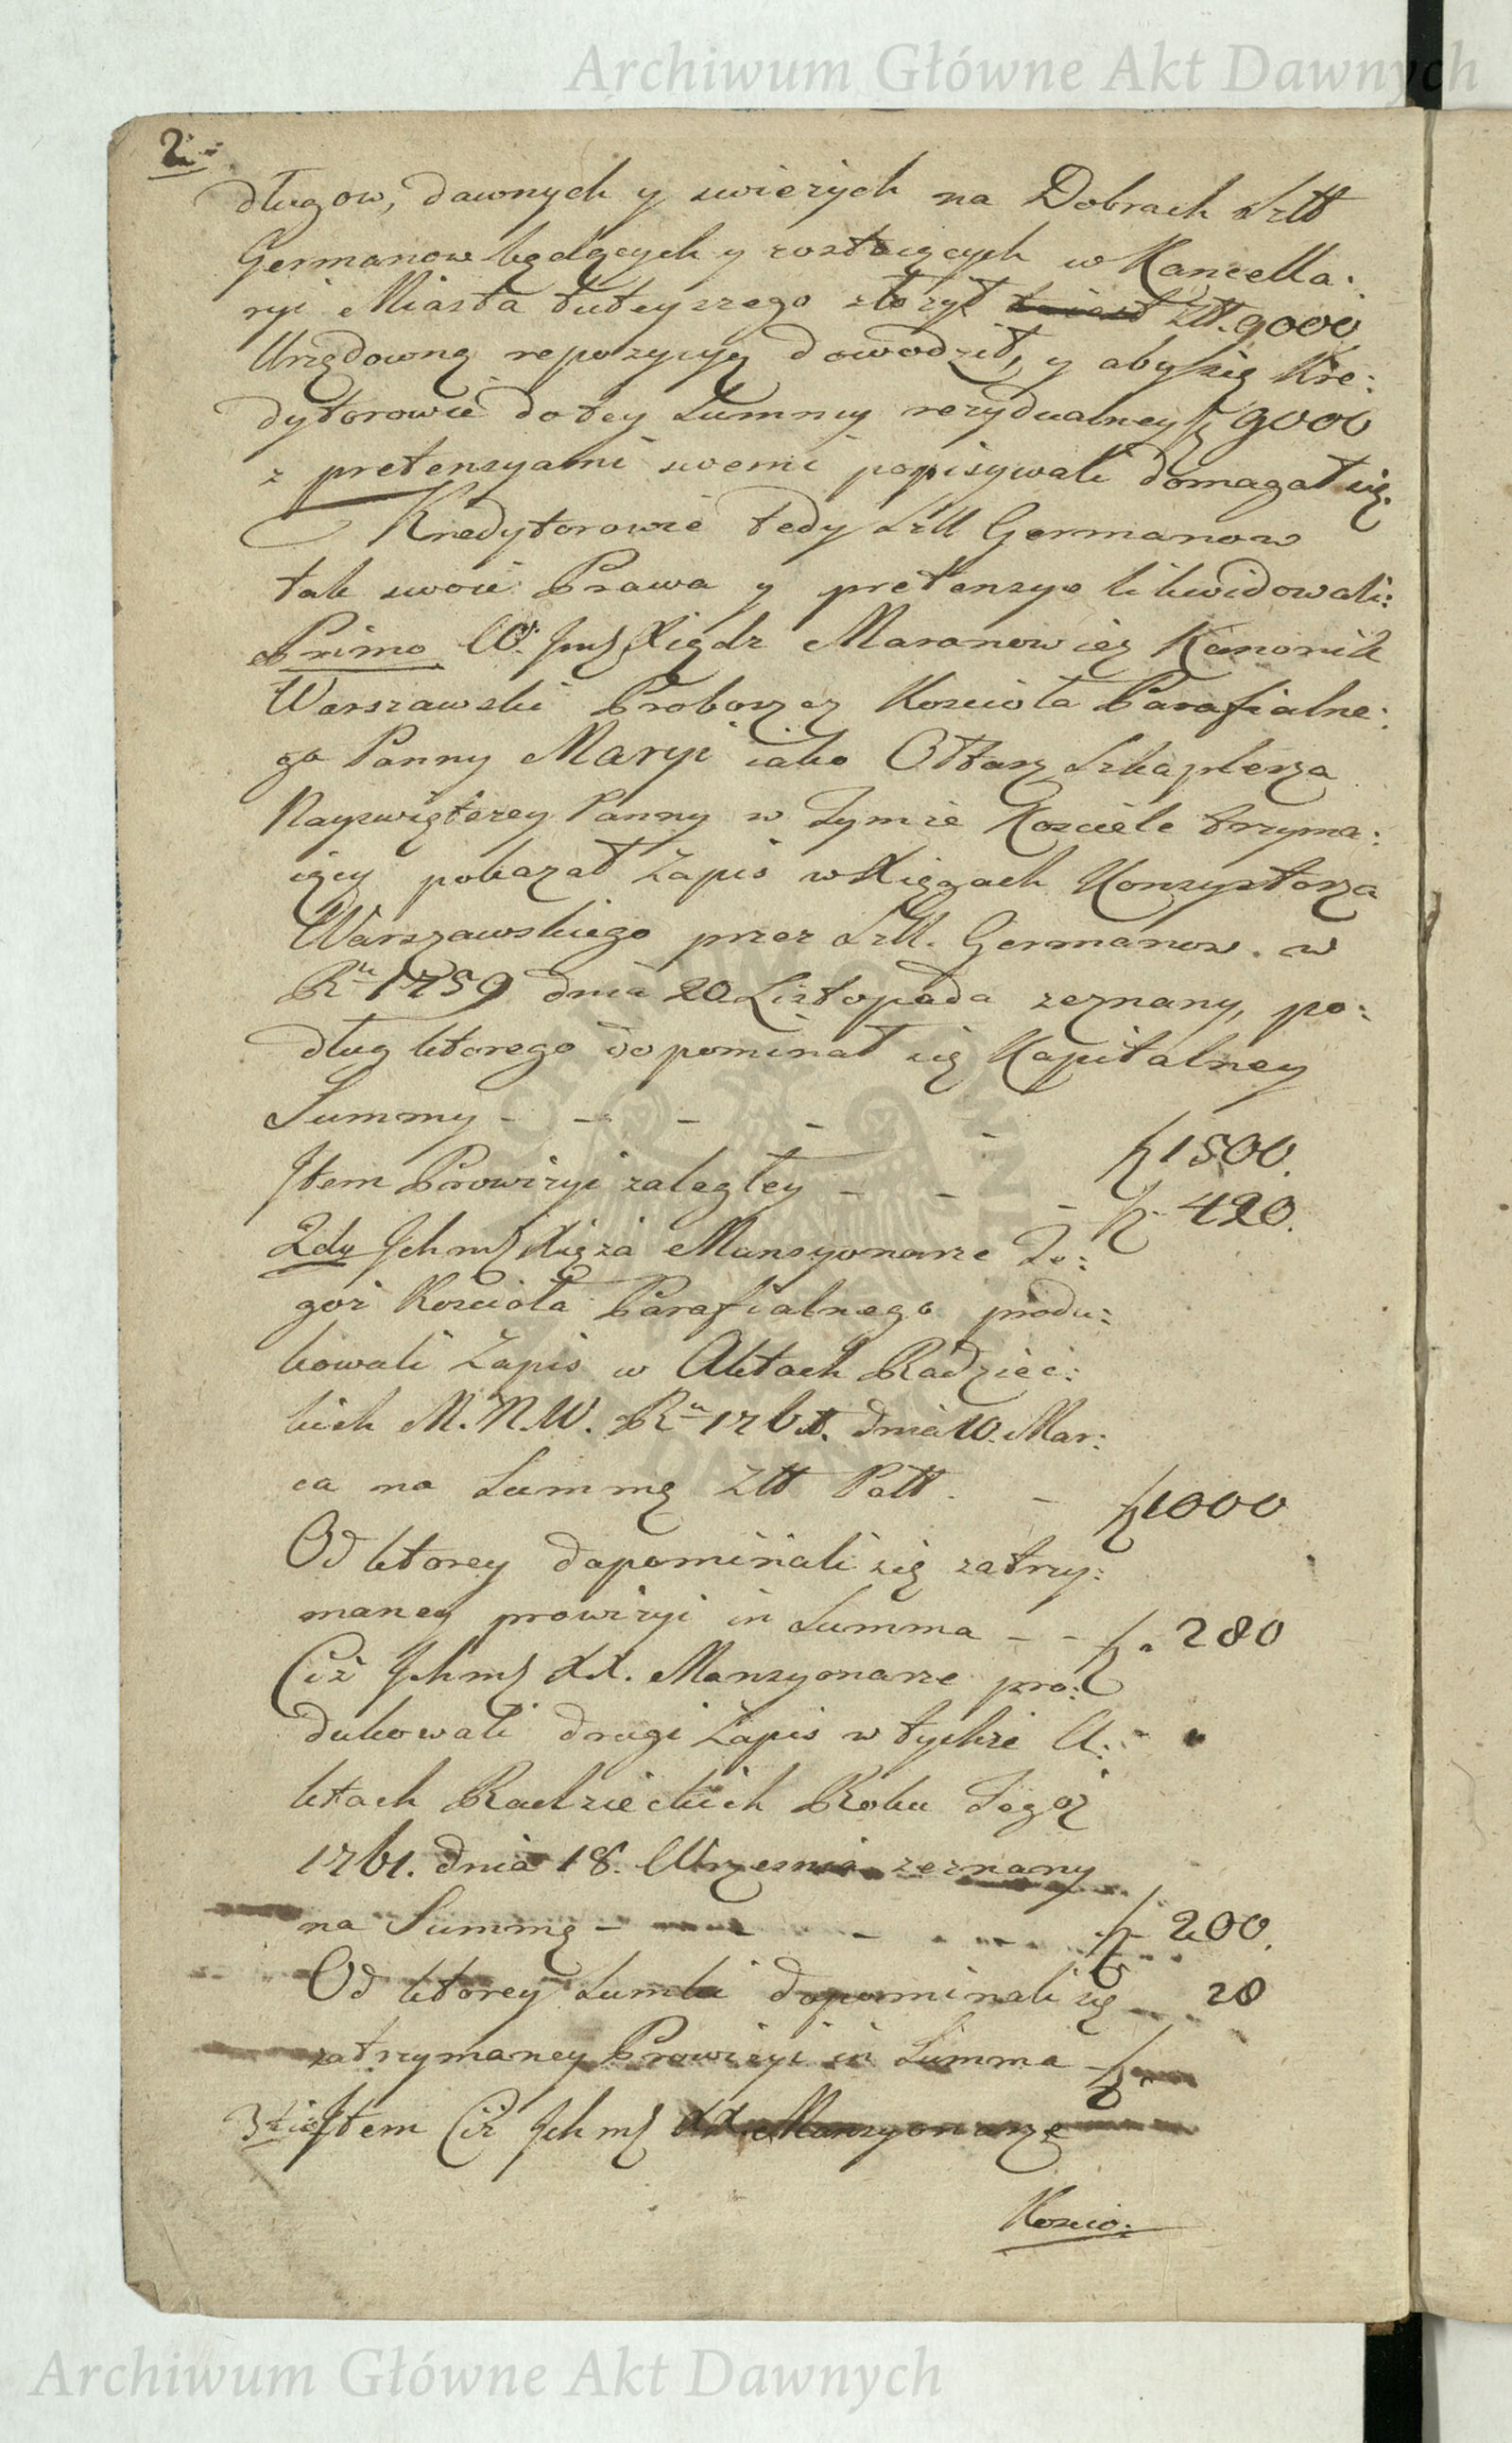 Archiwum Główne Akt Dawnych
2.
długow, dawnych y swieżych na Dobrach Szll
Germanow będących y zostaiących w Kancella:
ryi Miasta tuteyszego złożył Złł. 9000
Urzędowną repozycyą dowodził, y aby się Kre:
dytorowie do tey Summy rezydualney 9000
z pretensyami swemi popisywali domagał się.
Kredytorowie tedy Szll Germanow
tak swoie Prawa y pretensye likwidowali:
Primo W. Jmś Xiądz Maranowicz Kanonik
Warszawski Proboszcz Koscioła Parafialne:
go Panny Maryi iako Ołtarz Szkaplerza
Nayswiętszey Panny w Tymże Kosciele trzyma:
iący pokazał Zapis w Xięgach Konsystorza
Warszawskiego przez Szll. Germanow. w
Ru 1759 dnia 20 Listopada zeznany, po:
dług ktorego dopominał się Kapitalney
Summy - - - - - 1500.
Item Prowizyi zaległey - - - 420.
2do Ichmś Xięża Mansyonarze Te:
goż Koscioła Parafialnego produ:
kowali Zapis w Aktach Radziec:
kich M. N. W. Ru 1761. dnia 10. Mar:
ca na Summę Złł Poll. - 1000
Od ktorey dopominali się zatrzy:
maney prowizyi in Summa - - 280
Ciż Ichmś XX. Mansyonarze pro:
dukowali drugi Zapis w tychże A:
ktach Radzieckich Roku Tegoż
1761. dnia 18. Wrzesnia zeznany
na Summę - - - 200.
Od ktorey Sumki dopominali się 28
zatrzymaney Prowizyi in Summa -
3tio Item Ciż Ichmś XX. Mansyonarze
Koscio:
Archiwum Główne Akt Dawnych